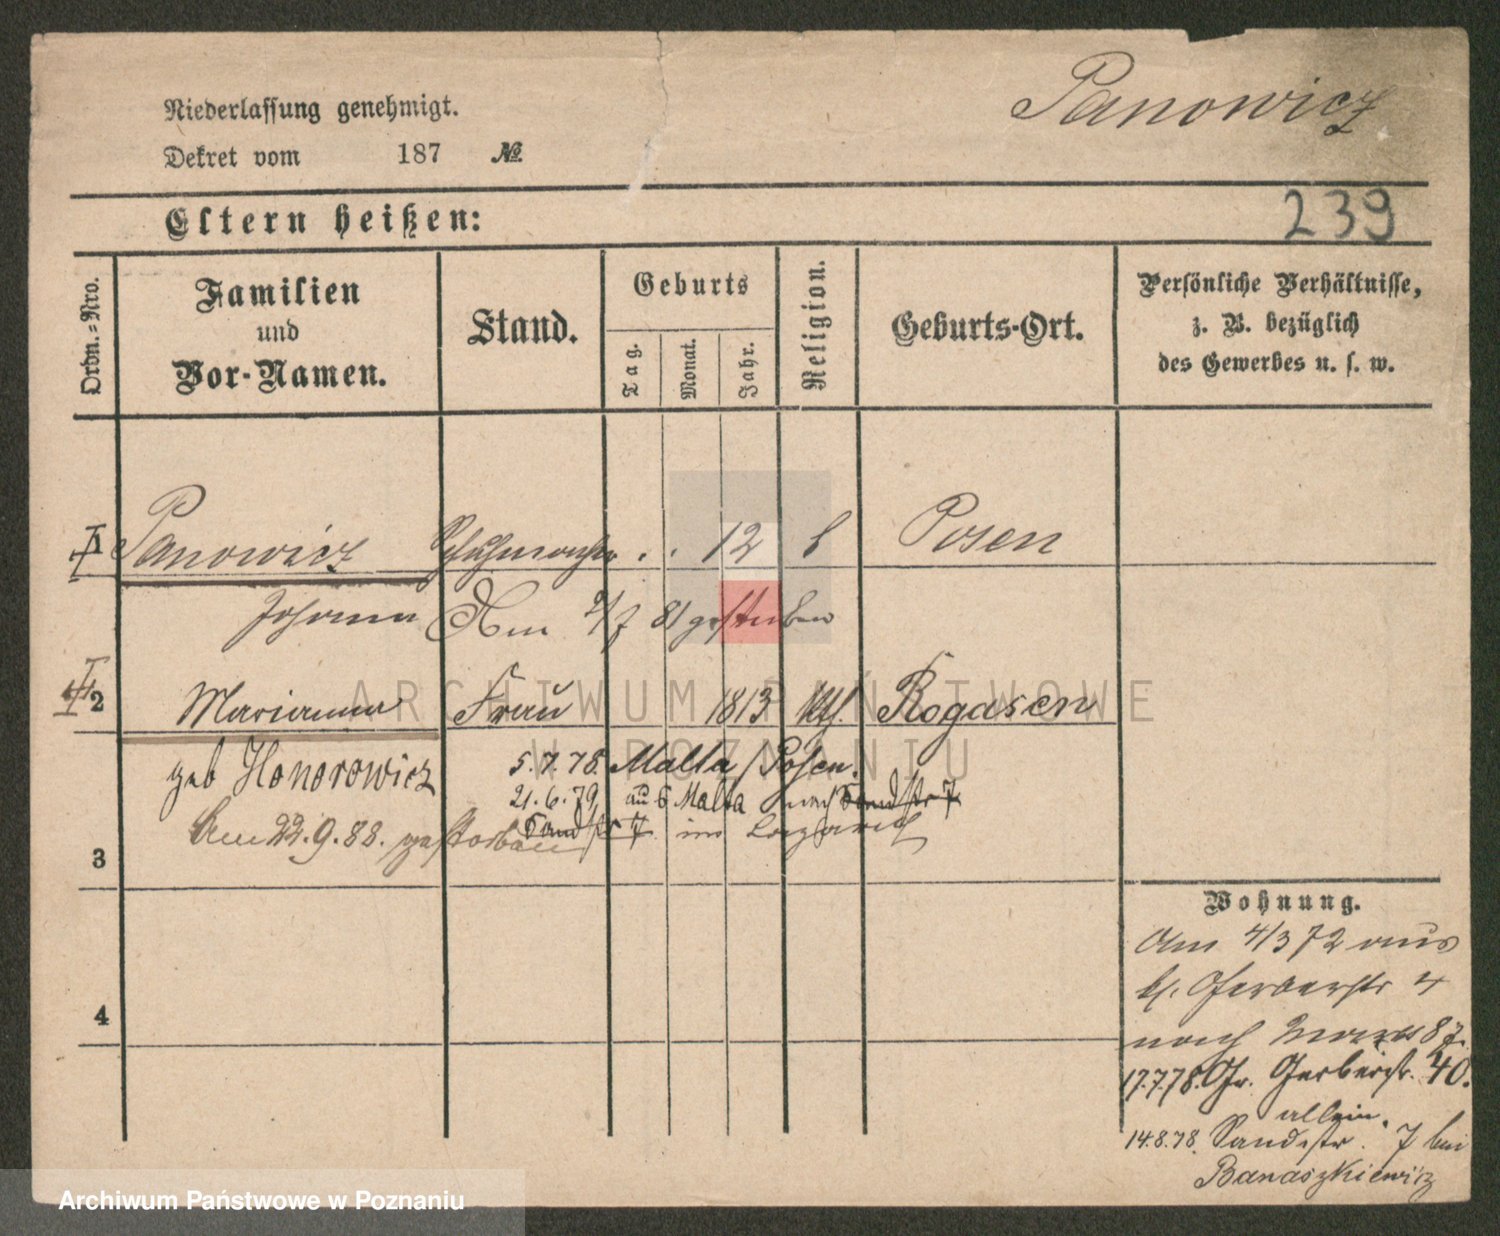 Panowicz
Niederlassung genehmigt.
Dekret vom 187 No.
239
Eltern heißen:
Ordn.=Nro.
Familien
und
Vor-Namen.
Stand.
Geburts
Tag.
Monat.
Jahr.
Religion.
Geburts-Ort.
Persönliche Verhältnisse,
z. B. bezüglich
des Gewerbes u. s. w.
1 Panowicz 12 Posen
Johann Am 2/7 81 gestorben
2 Marianna Frau 1813 kth. Rogasen
geb Honorowicz 5.7.78. Malta/Posen.
21.6.79 Malta nach Sandstr 7
Am 22.9.88. gestorben Sandstr 7 im
3
4
Wohnung.
Am 4/3 72 aus
kl. Gerberstr 4
nach 87.
17.7.78. Gr. Gerberstr. 40.
allein.
14.8.78. Sandstr. 7 bei
Banaszkiewicz
ARCHIWUM PAŃSTWOWE
W POZNANIU
Archiwum Państwowe w Poznaniu